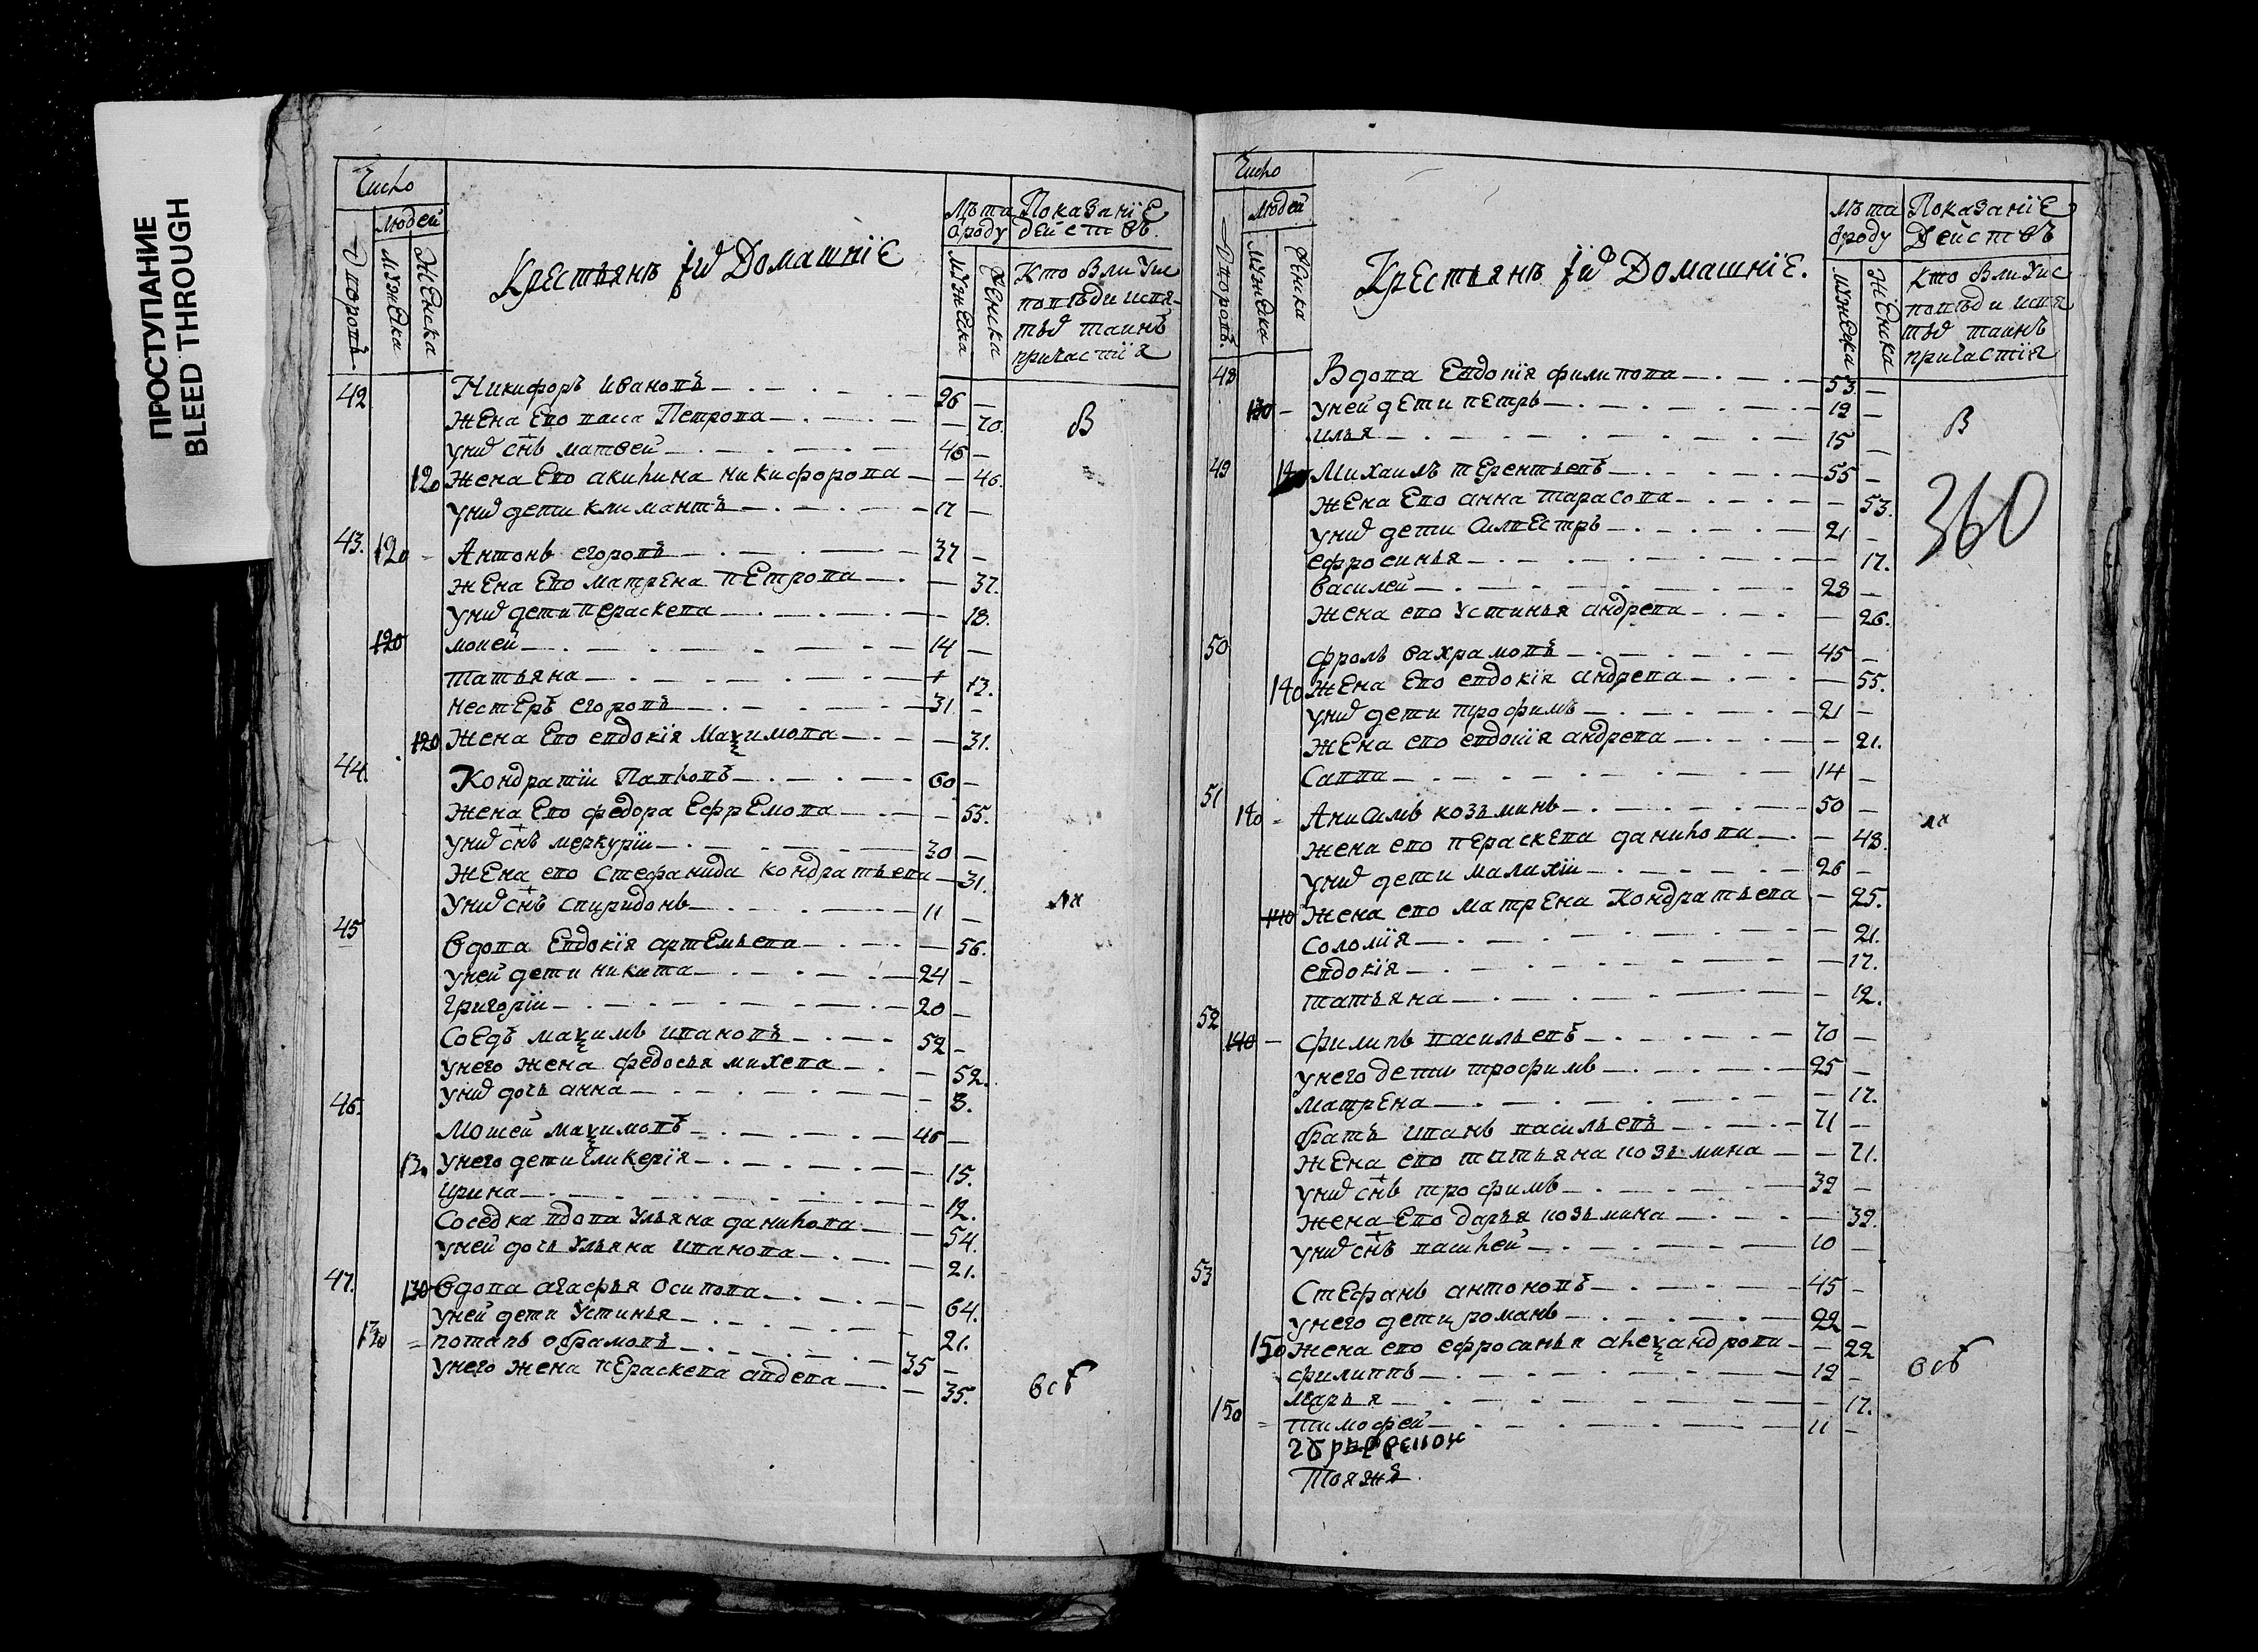 ПРОСТУПАНИЕ
BLEED THROUGH
Число
Людей
Дворовъ
Мужеска
Женска
Крестьянъ їихъ Домашніе
Лѣта отроду
Мужеска
Женска
Показаніе действъ.
Кто былъ уис
повѣди исвя-
тыхъ таинъ
причастія
42 Никифоръ Ивановъ 26 —
Жена Его васа Петрова — 70.
В
унихъ снъ матвей 46 —
120 Жена Его акилина никифорова — 46.
унихъ дети климантъ 17 —
43. 120 Антонъ егоровъ 37 —
Жена Его матрена петрова — 37.
унихъ дети параскева — 18.
120 мовей 14 —
татьяна + 13.
нестеръ егоровъ 31 —
120 Жена Его евдокія Маѯимова — 31.
44. Кондратіи Павловъ 60 —
Жена Его федора Ефремова — 55.
унихъ снъ меркуріи 30 —
Жена его стефанида кондратьева 31.
унихъ снъ спиридонъ 11 —
ли
45 вдова Евдокія артемьева — 56.
уней дети никита 24 —
григоріи 20 —
Соседъ маѯимъ ивановъ 52 —
унего жена федосья михева — 52.
унихъ дочь анна — 3.
46. Мосей маѯимовъ 46 —
13. унего дети гликерія — 15.
ирина — 12.
Соседка вдова ульяна данилова — 54.
уней дочь ульяна иванова — 21.
47. 130 вдова агафья осипова — 64.
уней дети устинья 21.
130 потапъ аврамовъ 35 —
унего жена параскева авдева — 35.
всѣ
Число
Людей
Дворовъ.
Мужеска
Женска
Крестьянъ їихъ Домашніе.
Лѣта отроду
Мужеска
Женска
Показаніе действъ
кто былъ уис
повѣди исвя
тыхъ таинъ
причастія
48 Вдова Евдокія филипова 53 —
130 — уней дети петръ 19 —
илья 15 —
В
49 140 Михаилъ терентьевъ 55 —
Жена его анна тарасова — 53.
360
унихъ дети силвестръ 21 —
ефросинья — 17.
василей 28 —
жена его устинья андрева — 26.
50 фролъ вахрамовъ 45 —
140 Жена Его евдокія андрева — 55.
унихъ дети трофимъ 21 —
Жена его евдокія андрева — 21.
Савва 14 —
51 140 Анисимъ козьминъ 50 —
ли
жена его параскева данилова — 48.
унихъ дети малихіи 26 —
140 Жена его матрена Кондратьева — 25.
соломія — 21.
евдокія — 17.
татьяна — 12.
52 140 — филипъ васильевъ 70 —
унего дети трофимъ 25 —
матрена — 17.
братъ иванъ васильевъ 71 —
Жена его татьяна козьмина — 71.
унихъ снъ трофимъ 39 —
жена Его дарья козьмина — 39.
унихъ снъ василей 10 —
53 Стефанъ антоновъ 45 —
унего дети романъ 22 —
150 Жена его ефросинья алеѯандрова — 22
всѣ
филиппъ 19 —
марья — 17.
150 тимофей 11 —
тояжъ.